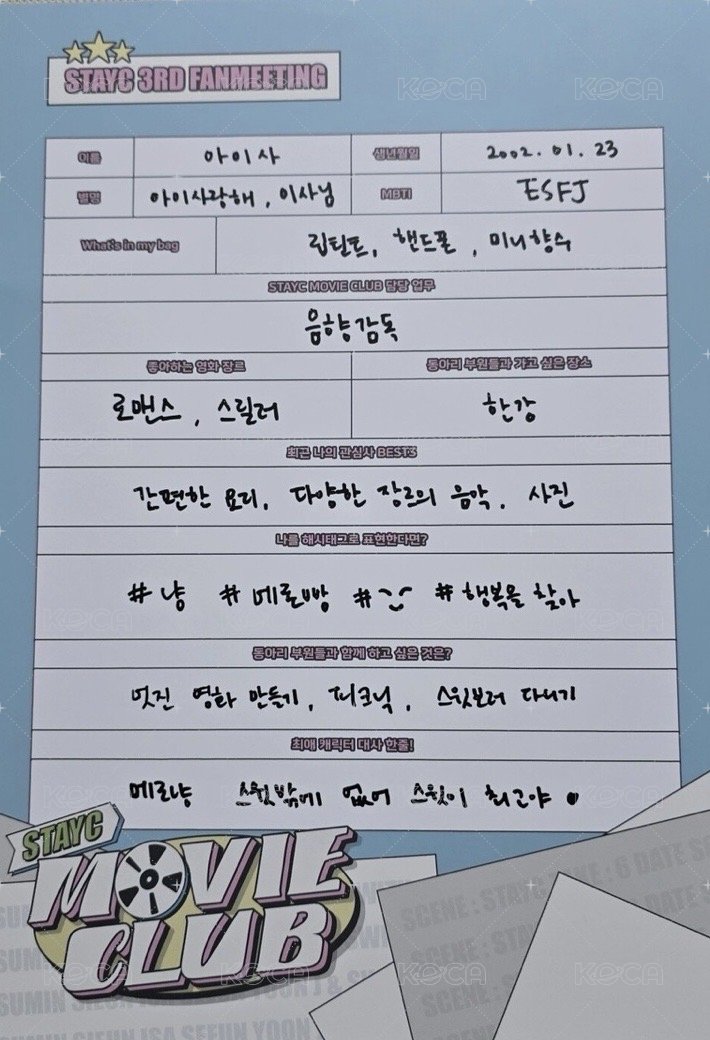 STAYC 3RD FANMEETING
이름 아이사 생년월일 2002. 01. 23
별명 아이사랑해, 이사님 MBTI ESFJ
What's in my bag 립틴트, 핸드폰, 미니향수
STAYC MOVIE CLUB 담당 업무
음향감독
좋아하는 영화 장르 동아리 부원들과 가고 싶은 장소
로맨스, 스릴러 한강
최근 나의 관심사 BEST3
간편한 요리, 다양한 장르의 음악, 사진
나를 해시태그로 표현한다면?
#냥 #메로빵 # #행복을 찾아
동아리 부원들과 함께 하고 싶은 것은?
멋진 영화 만들기, 피크닉, 스윗보러 다니기
최애 캐릭터 대사 한줄!
메로냥 스윗밖에 없어 스윗이 최고야
STAYC
MOVIE
CLUB
SCENE : STAYC
6 DATE
SCENE : STA
SUMIN
SUMIN SIEUN ISA SEEUN YOON
KOCA